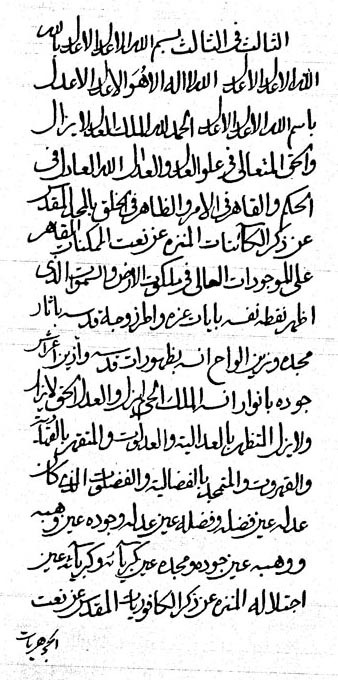 الثالث في الثالث بسم الله الاعدل الاعدل بالله
الله الاعدل الاعدل الله لا اله الا هو الاعدل الاعدل
باسم الله الاعدل الاعدل الحمد لله الملك العدل لا يزال
والحق المتعالی في علو العدل والعدل الله العادل في
الحكم والقاهر في الامر والظاهر في الخلق بالمجد المقدس
عن ذكر الكائنات المنزه عن نعت الممكنات القاهر
علی الموجودات العالي في ملكوت الارض والسموات الذي
اظهر نقطه نفسه بايات عزه واطرز وجه قدسه باثار
مجده وزين الواح انسه بظهورات قدسه واذين اعراش
جوده بانوار انسه الملك الحي لم يزل والعدل الحق لا يزال
ولا يزل المتظهر بالعدالية والعدلوت والمتقهر بالقهارية
والقهروت والمتمجد بالفضالية والفضلوت الذي كان
عدله عين فضله وفضله عين عدله وجوده عين وهبه
ووهبه عين جوده ومجده عين كبريائه وكبريائه عين
اجتلاله المنزه عن ذكر الكافوريات المقدس عن نعت
الجوهريات